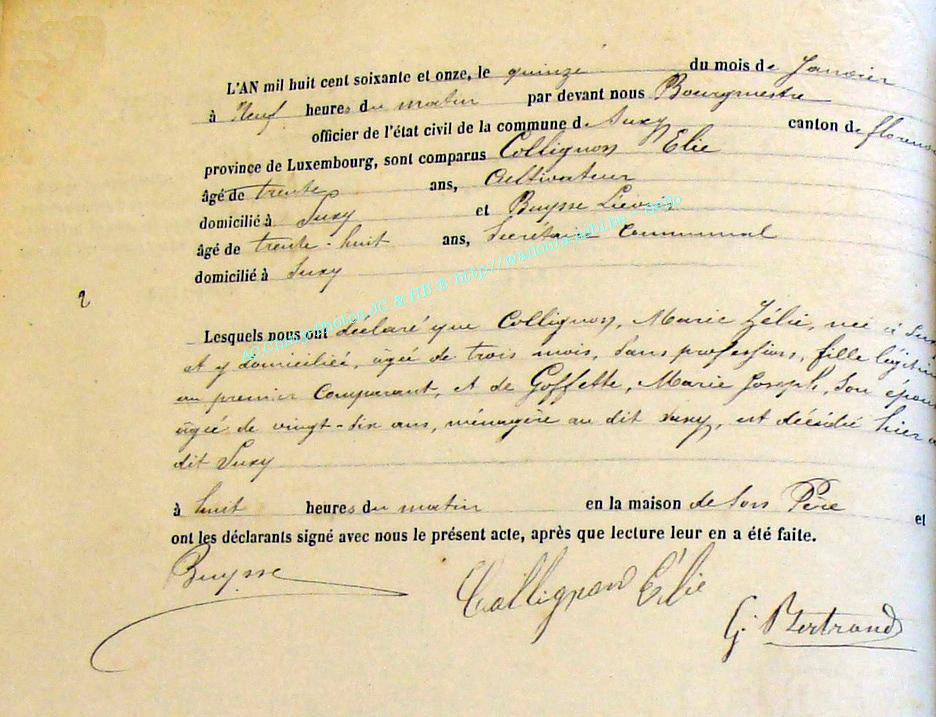 L'AN mil huit cent soixante et onze, le quinze du mois de Janvier
à Neuf heures du matin par devant nous Bourgmestre
officier de l'état civil de la commune d Suxy canton de floren
province de Luxembourg, sont comparus Collignon Elie
âgé de trente ans, Cultivateur
domicilié à Suxy et Buysse Liévin
âgé de trente-huit ans, Secrétaire Communal
domicilié à Suxy
2
Lesquels nous ont déclaré que Collignon, Marie Zélie, née à Sux
et y domiciliée, âgée de trois mois, sans profession, fille légitim
au premier Comparant, et de Goffette, Marie Joseph, son épous
âgée de vingt-six ans, ménagère au dit Suxy, est décédée hier a
dit Suxy
à huit heures du matin en la maison de son Père et
ont les déclarants signé avec nous le présent acte, après que lecture leur en a été faite.
Buysse
Collignon Elie
G. Bertrand